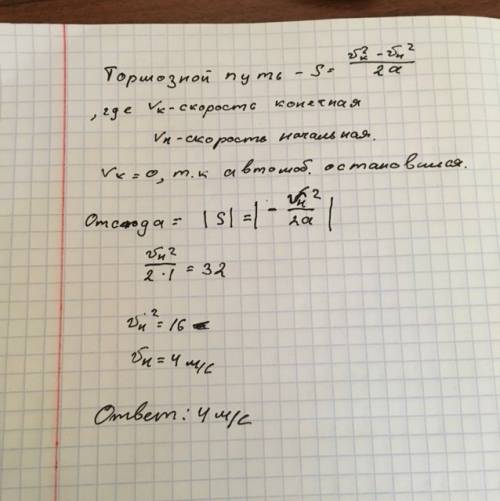 Тормозной путь - S = (v_к² - v_н²) / 2a
, где v_к - скорость конечная
v_н - скорость начальная.
v_к = 0, т.к автомоб. остановился.
Отсюда = |S| = |- v_н² / 2a|
v_н² / 2·1 = 32
v_н² = 16
v_н = 4 м/с
Ответ: 4 м/с